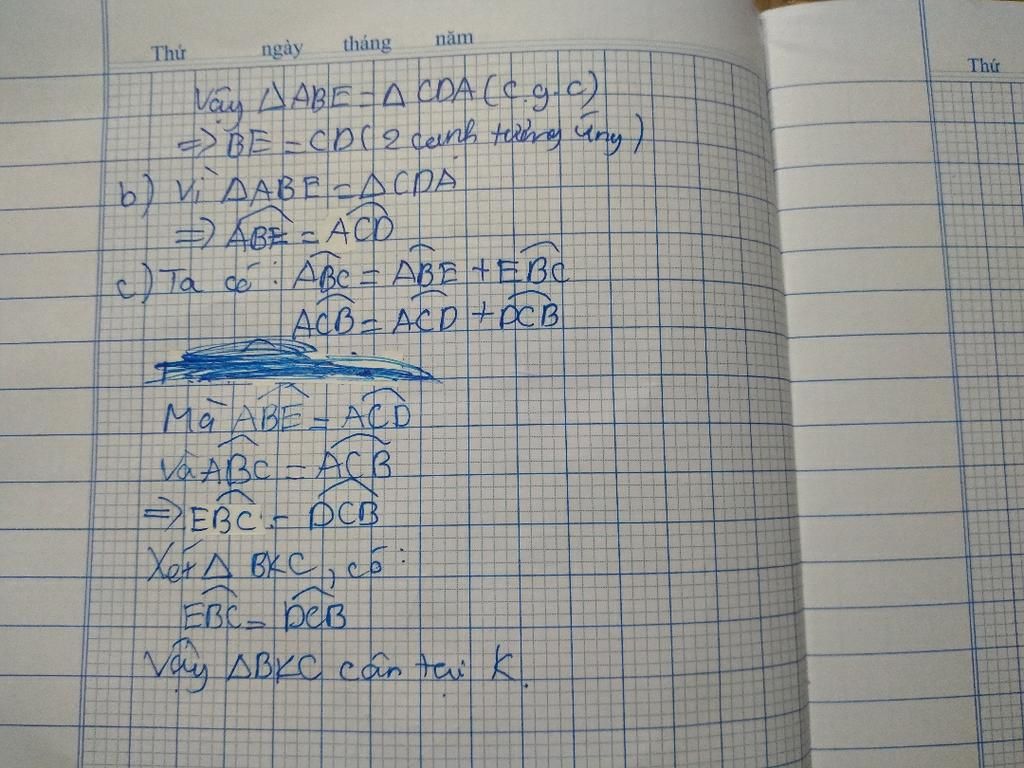 Thứ ngày tháng năm
Thứ
Vậy △ABE = △CDA (c.g.c)
=> BE = CD (2 cạnh tương ứng)
b) Vì △ABE = △CDA
=> ABE = ACD
c) Ta có: ABC = ABE + EBC
ACB = ACD + DCB
Mà ABE = ACD
và ABC = ACB
=> EBC = DCB
Xét △ BKC, có:
EBC = DCB
Vậy △BKC cân tại K.